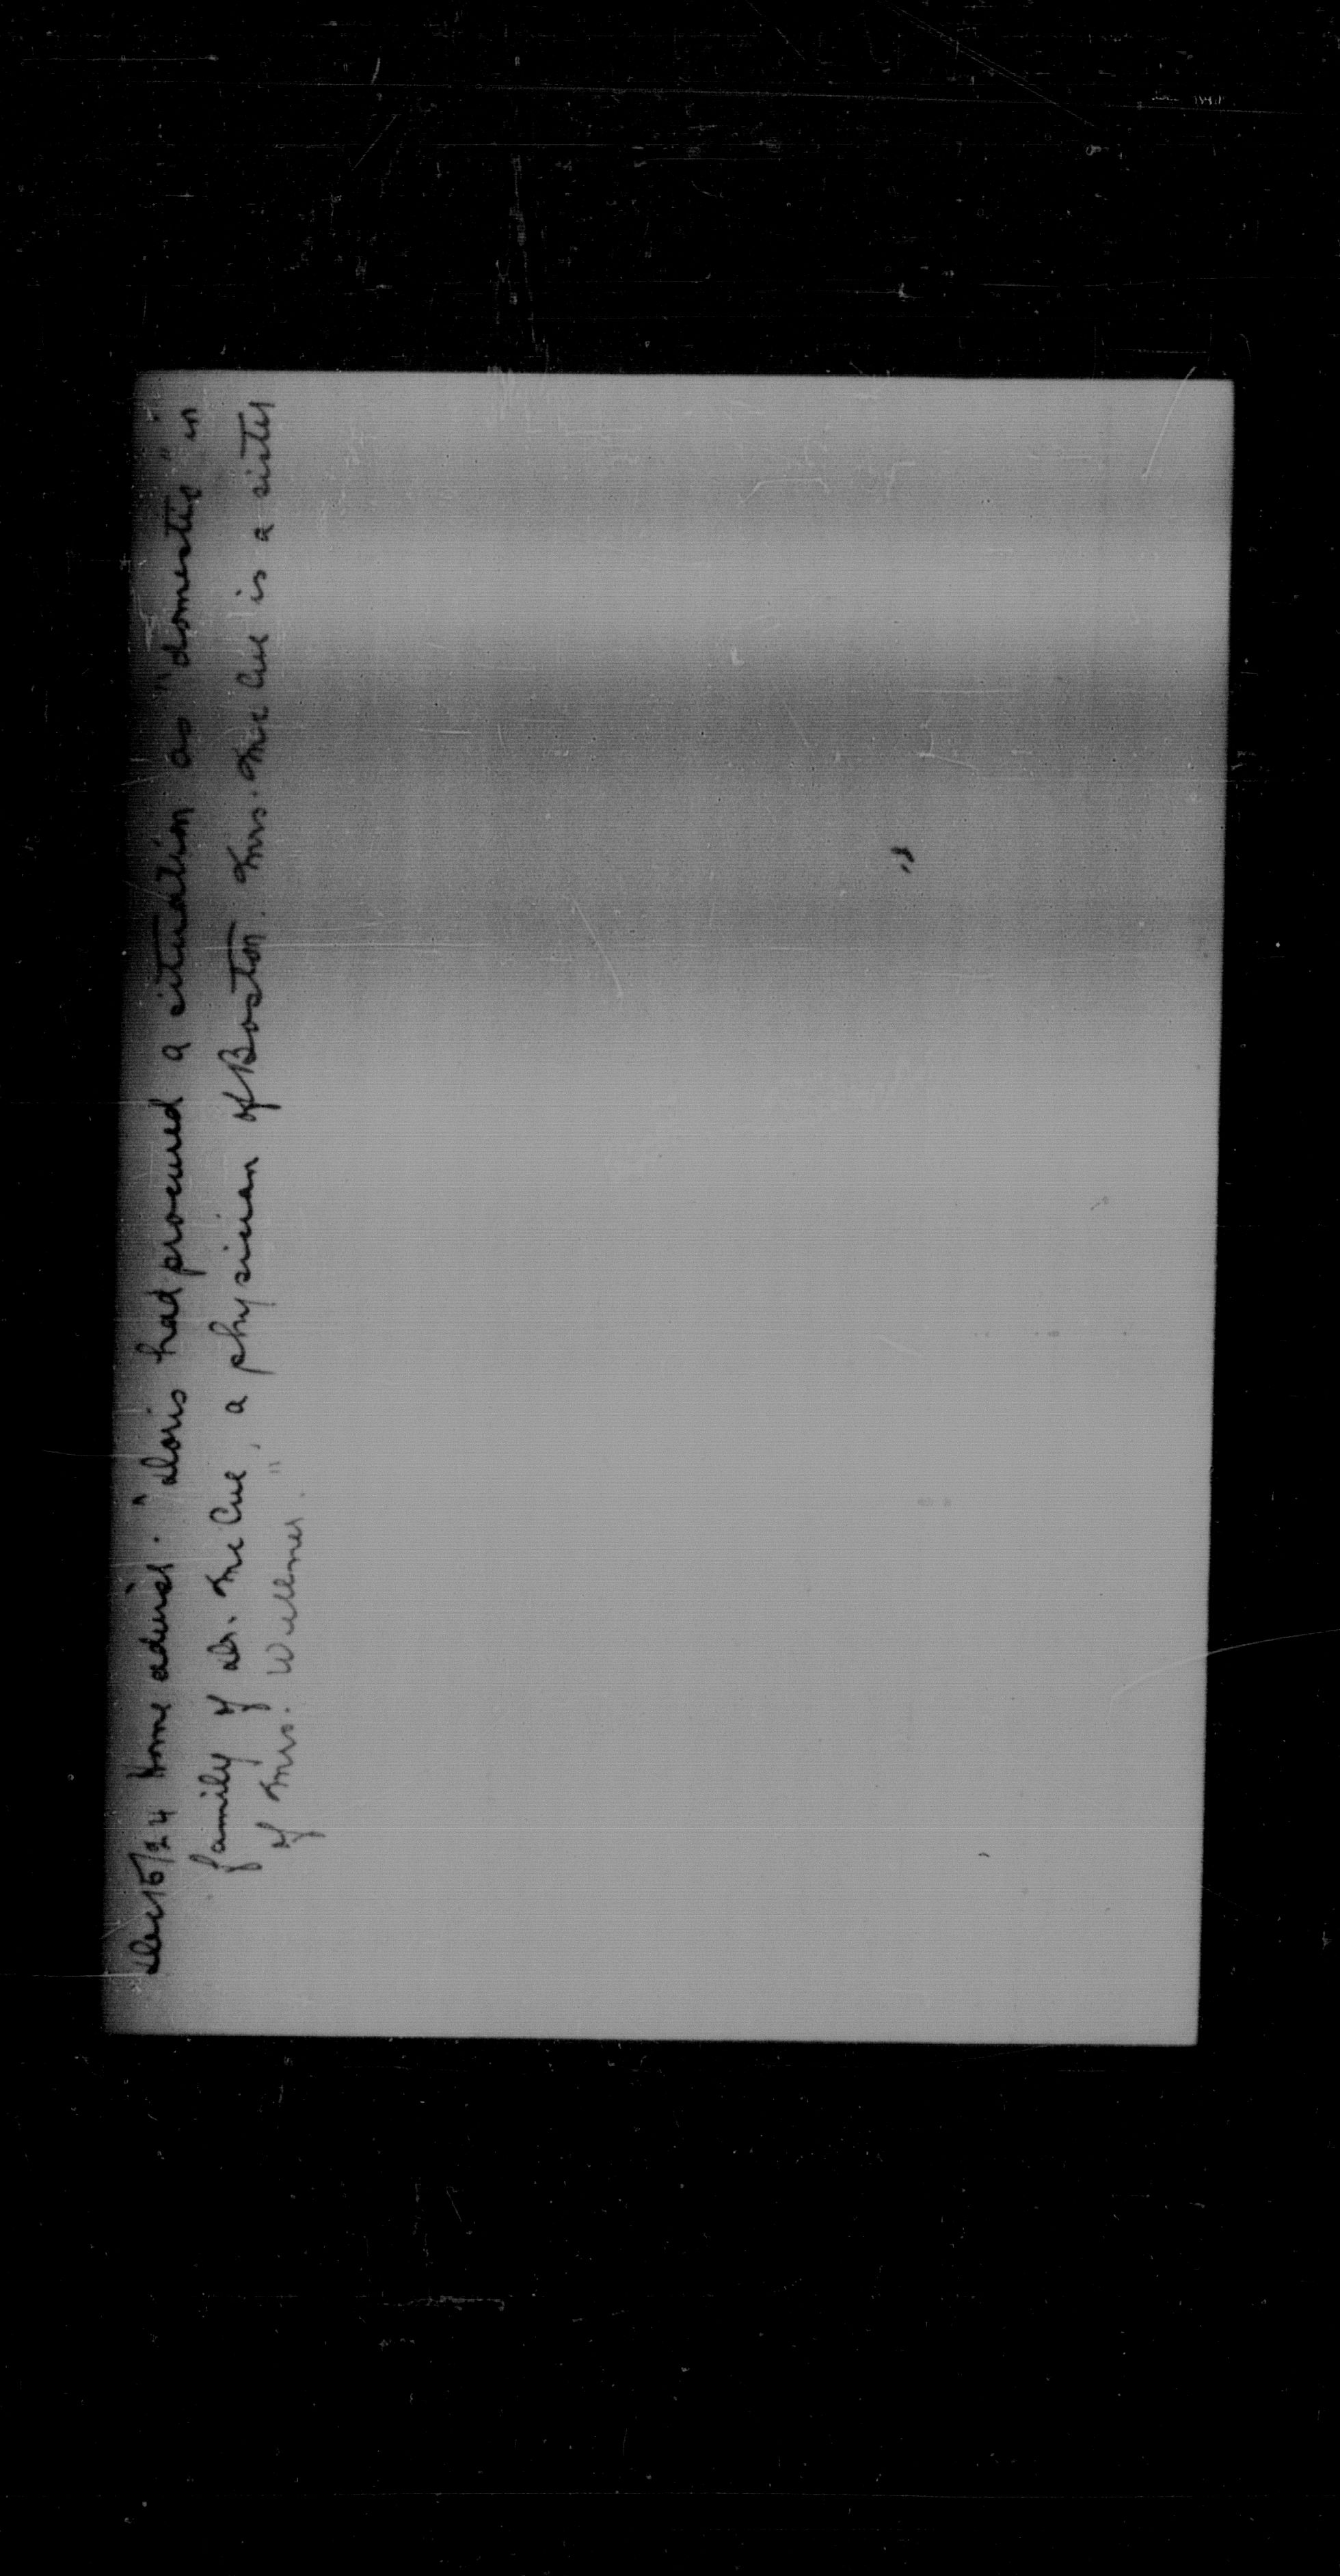 Dec 15/24 Home advises. "Doris had procured a situation as "domestic" in
family of Dr. McCue, a physician of Boston. Mrs. McCue is a sister
of Mrs. Willmer."